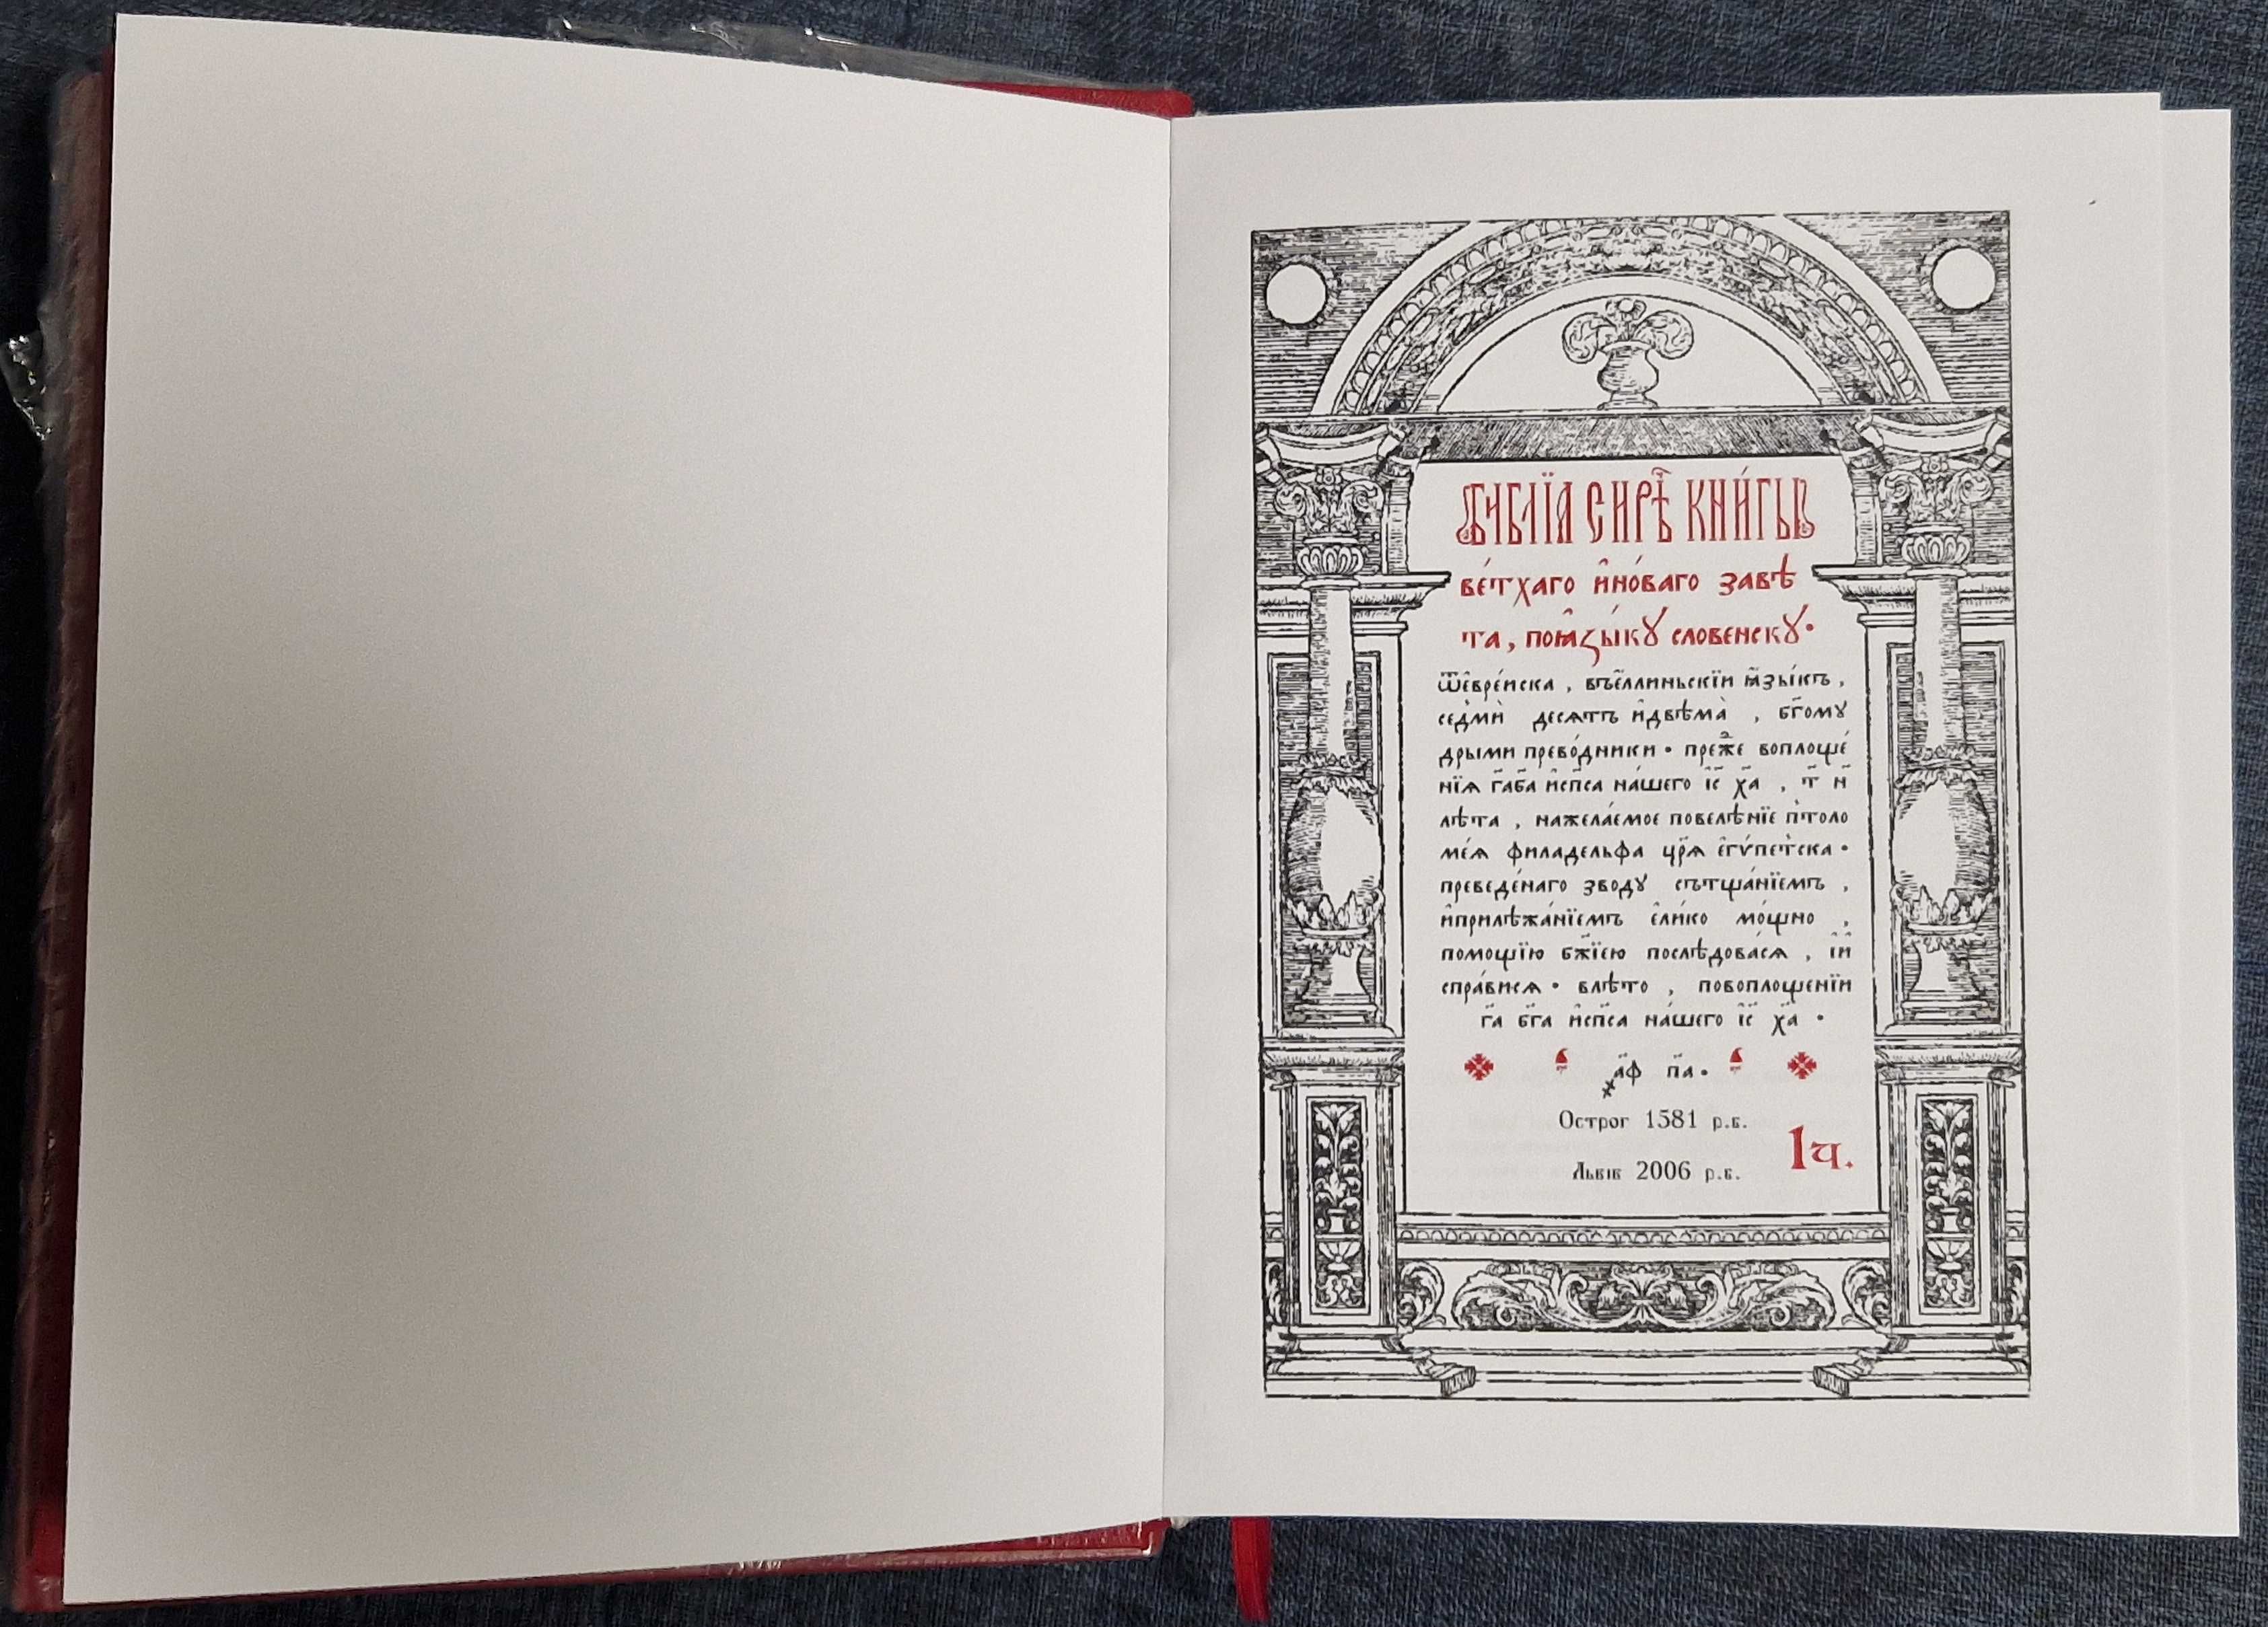 Бибlїѧ сирѣ́ч кни́гы
ве́тхаго и҆но́ваго завѣ
та, поꙗ҆зы́кꙋ словенскꙋ·
ѿе҆вре́иска, въе҆́ллиньскїи ꙗ҆зы́къ,
седми́ десѧтъ и҆двѣма̀, бг҃омꙋ
дрыми прево́дники· преⷤ҇е воплоще́
нїѧ га҃ба҃ и҆сп҃са на́шего і҆с҃ ха҃, т҃ и҃
лѣта, нажела́емое повелѣнїе пто́ло
ме́ѧ филаде́льфа цр҃ѧ е҆гѵ́петска·
преведе́наго зводꙋ сътща́нїемъ,
и҆прилѣжа́нїемъ е҆ли́ко мо́щно,
помощїю бж҃їею послѣдова́сѧ, і҆и҆
спра́висѧ· влѣто, повоплощенїи
га҃ бг҃а и҆сп҃са на́шего і҆с҃ ха҃·
҂а҃ф п҃а·
Острог 1581 р.б.
1ч.
Львів 2006 р.б.